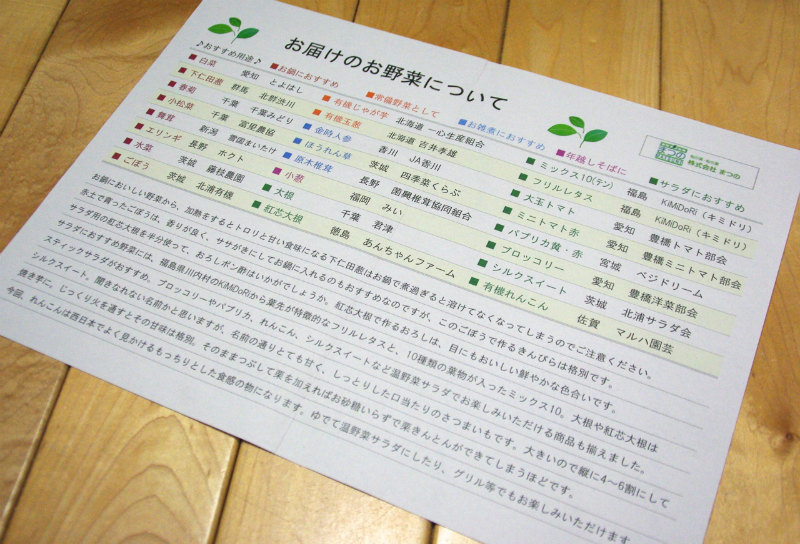 お届けのお野菜について
♪おすすめ用途♪
■お鍋におすすめ ■常備野菜として ■お雑煮におすすめ ■年越しそばに ■サラダにおすすめ
株式会社 まつの
■白菜 愛知 とよはし
■下仁田葱 群馬 北群渋川
■春菊 千葉 千葉みどり
■小松菜 千葉 富里農協
■舞茸 新潟 雪国まいたけ
■エリンギ 長野 ホクト
■水菜 茨城 藤枝農園
■ごぼう 茨城 北浦有機
■有機じゃが芋 北海道 一心生産組合
■有機玉葱 北海道 吉井孝雄
■金時人参 香川 JA香川
■ほうれん草 茨城 四季菜くらぶ
■原木椎茸 長野 菌興椎茸協同組合
■小葱 福岡 みい
■大根 千葉 君津
■紅芯大根 徳島 あんちゃんファーム
■ミックス10(テン) 福島 KiMiDoRi(キミドリ)
■フリルレタス 福島 KiMiDoRi(キミドリ)
■大玉トマト 愛知 豊橋トマト部会
■ミニトマト赤 愛知 豊橋ミニトマト部会
■パプリカ黄・赤 宮城 ベジドリーム
■ブロッコリー 愛知 豊橋洋菜部会
■シルクスイート 茨城 北浦サラダ会
■有機れんこん 佐賀 マルハ園芸
お鍋においしい野菜から、加熱をするとトロリと甘い食味になる下仁田葱はお鍋で煮過ぎると溶けてなくなってしまうのでご注意ください。
赤土で育ったごぼうは、香りが良く、ササがきにしてお鍋に入れるのもおすすめなのですが、このごぼうで作るきんぴらは格別です。
サラダ用の紅芯大根を半分使って、おろしポン酢はいかがでしょうか。紅芯大根で作るおろしは、目にもおいしい鮮やかな色合いです。
サラダにおすすめ野菜には、福島県川内村のKiMiDoRiから葉先が特徴的なフリルレタスと、10種類の葉物が入ったミックス10。大根や紅芯大根は
スティックサラダがおすすめ、ブロッコリーやパプリカ、れんこん、シルクスイートなど温野菜サラダでお楽しみいただける商品も揃えました。
シルクスイート。聞きなれない名前かと思いますが、名前の通りとても甘く、しっとりした口当たりのさつまいもです。大きいので縦に4~6割にして
焼き芋に。じっくり火を通すとその甘味は格別。そのままつぶして栗を加えればお砂糖いらずで栗きんとんができてしまうほどです。
今回、れんこんは西日本でよく見かけるもっちりとした食感の物になります。ゆでて温野菜サラダにしたり、グリル等でもお楽しみいただけます